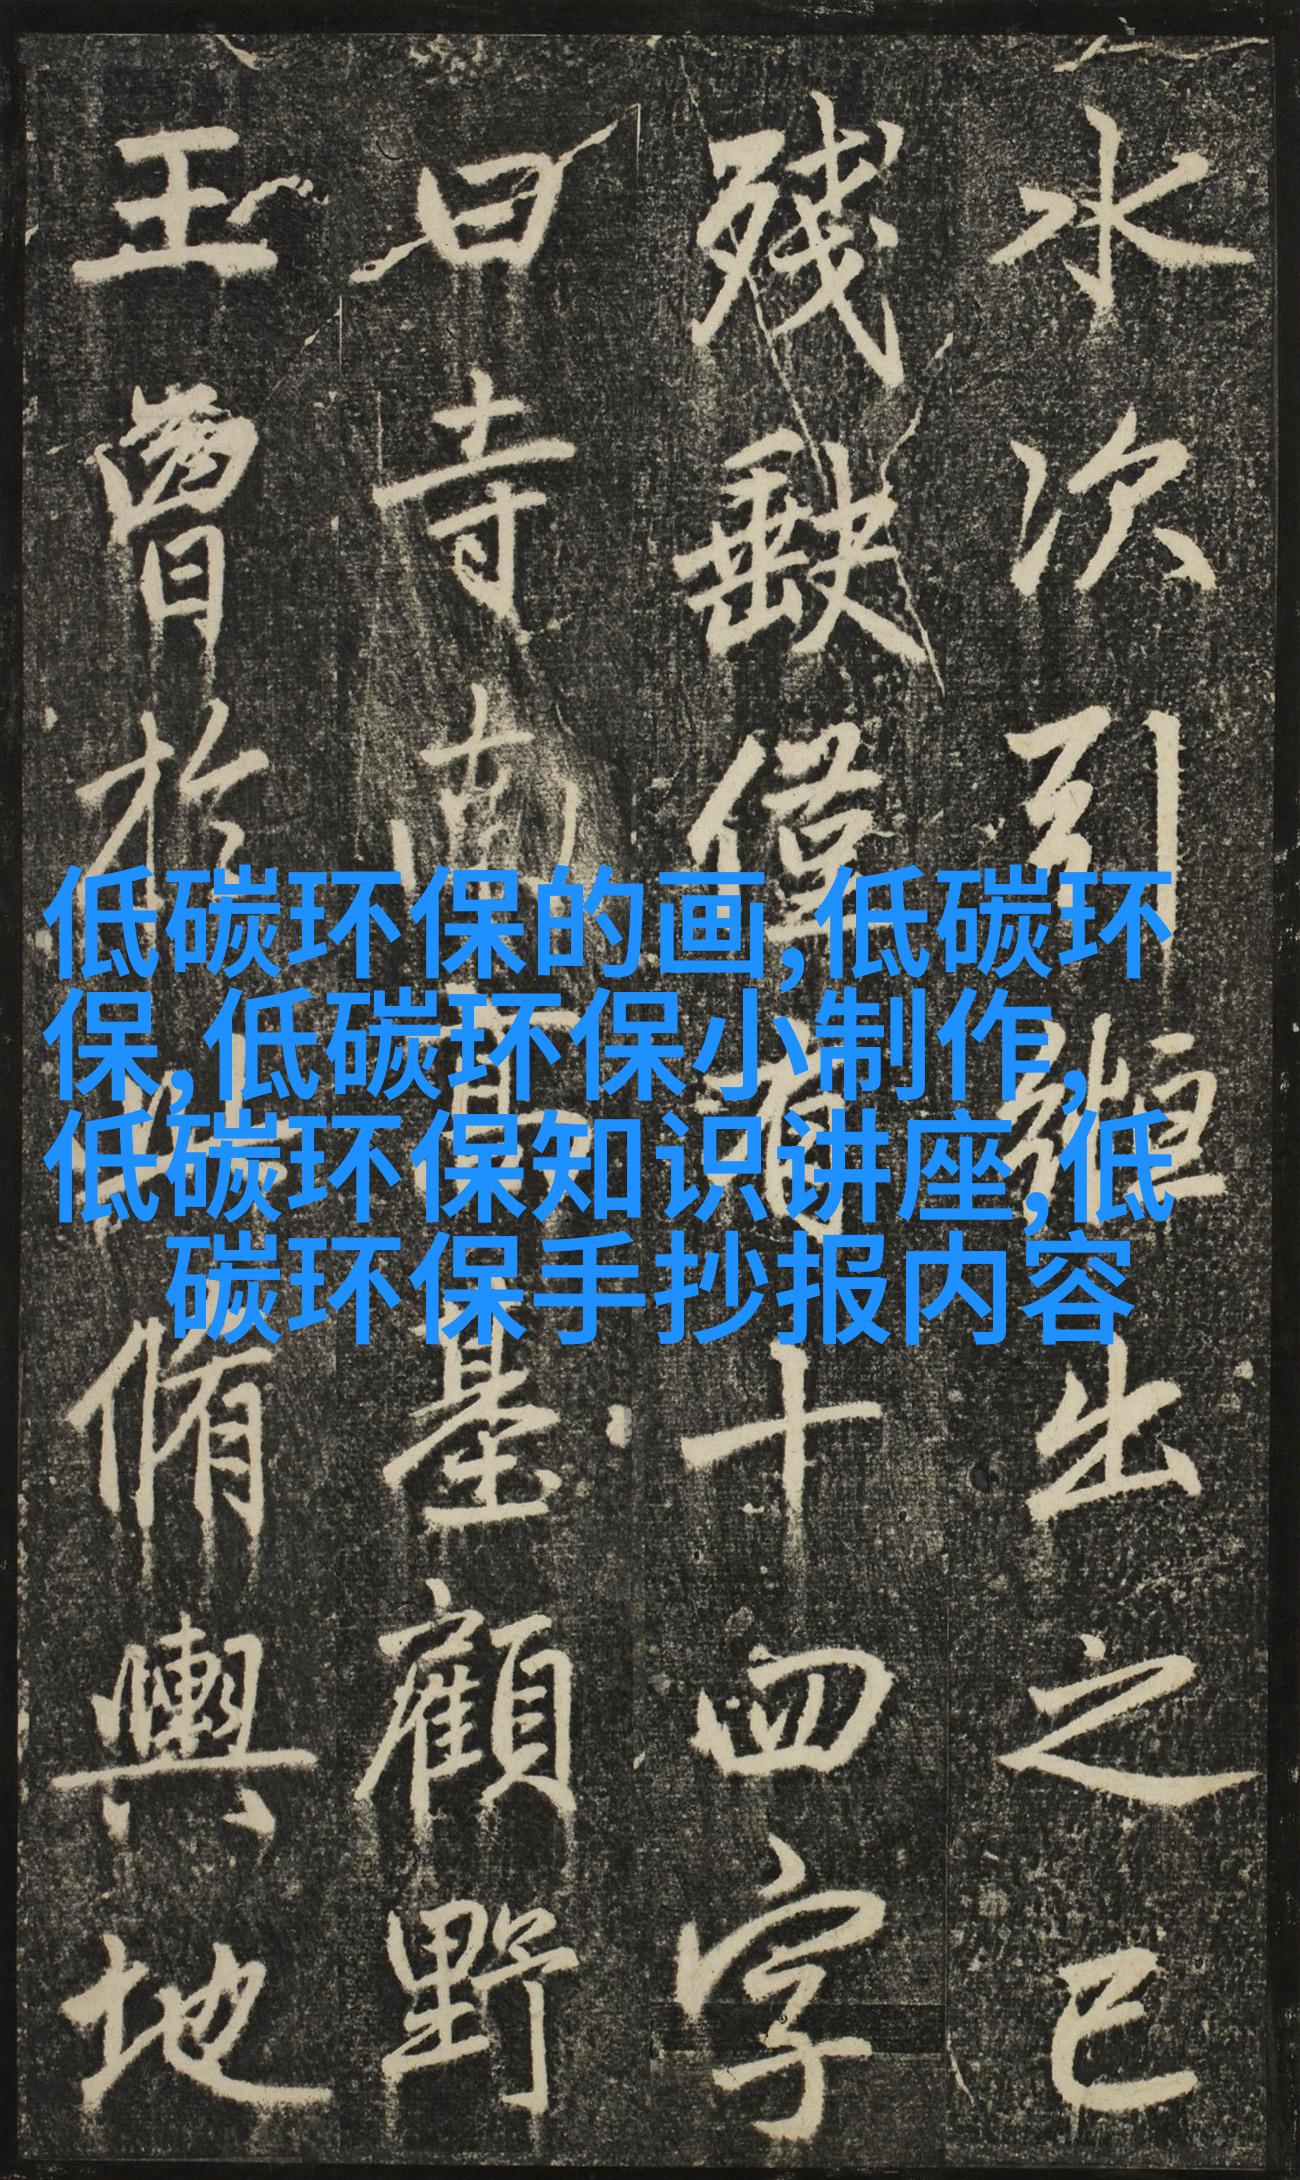 低碳环保的画,低碳环
保,低碳环保小制作,
低碳环保知识讲座,低
碳环保手抄报内容
水次引縆出之已
殘缺僅有十四字
曰寺南高基顧野
王曾於此脩輿地